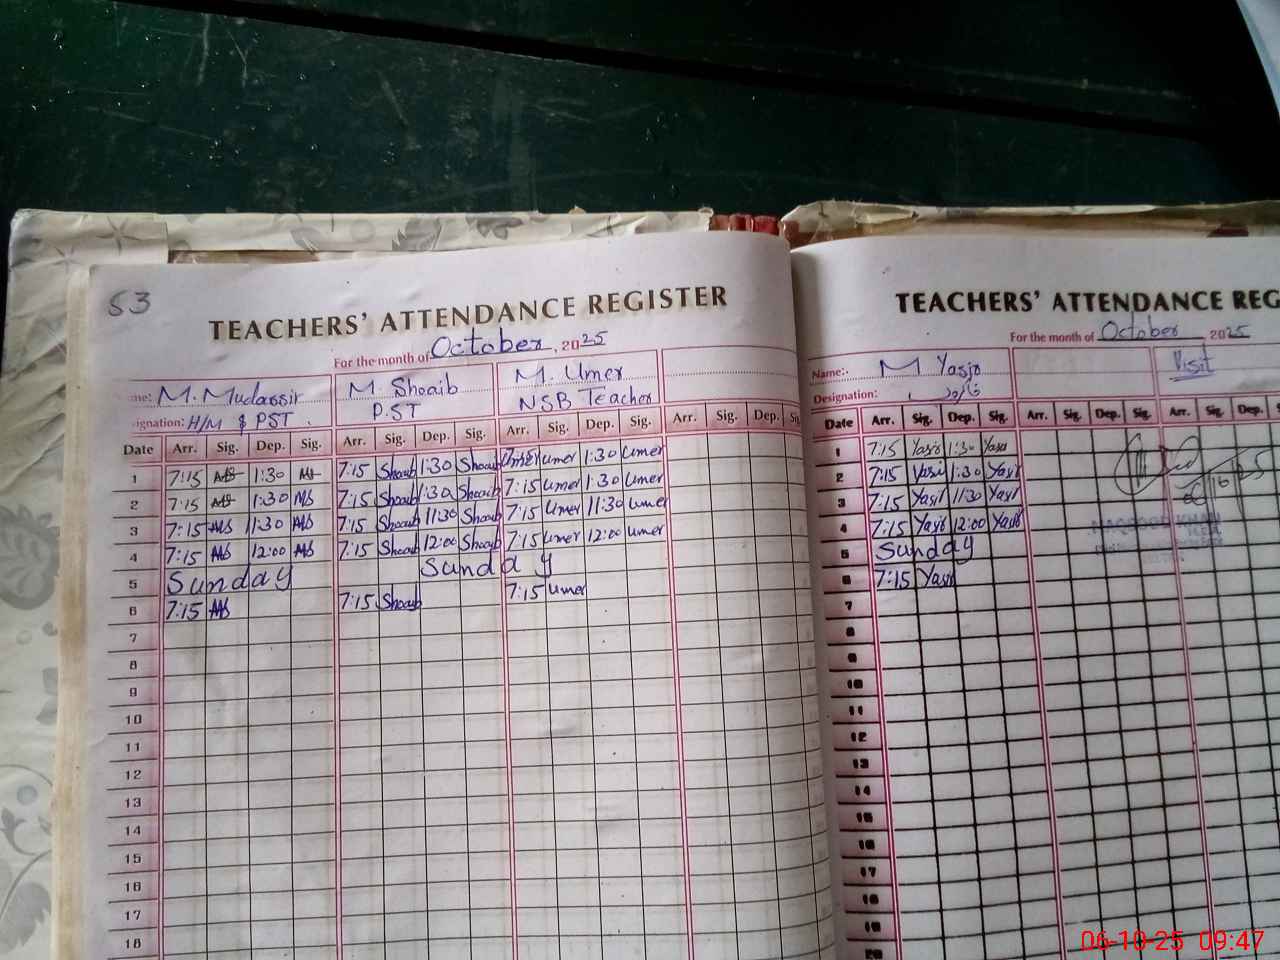 53
TEACHERS' ATTENDANCE REGISTER
For the month of October, 2025
me: M. Mudassir M. Shoaib M. Umer
ignation: H/M & PST. P.ST NSB Teacher
Date Arr. Sig. Dep. Sig. Arr. Sig. Dep. Sig. Arr. Sig. Dep. Sig. Arr. Sig. Dep. S
1 7:15 1:30 7:15 Shoaib 1:30 Shoaib Umer 1:30 Umer
2 7:15 1:30 7:15 Shoaib 1:30 Shoaib 7:15 Umer 1:30 Umer
3 7:15 11:30 7:15 Shoaib 11:30 Shoaib 7:15 Umer 11:30 Umer
4 7:15 12:00 7:15 Shoaib 12:00 Shoaib 7:15 Umer 12:00 Umer
5 Sunday Sunday
6 7:15 7:15 Shoaib 7:15 Umer
7
8
9
10
11
12
13
14
15
16
17
18
TEACHERS' ATTENDANCE REG
For the month of October 2025
Name: M Yasir Visit
Designation:
Date Arr. Sig. Dep. Sig. Arr. Sig. Dep. Sig. Arr. Sig. Dep.
1 7:15 Yasir 1:30 Yasir
2 7:15 Yasir 1:30 Yasir
3 7:15 Yasir 11:30 Yasir
4 7:15 Yasir 12:00 Yasir
5 Sunday
6 7:15 Yasir
7
8
9
10
11
12
13
14
15
16
17
18
19
20
06-10-25 09:47